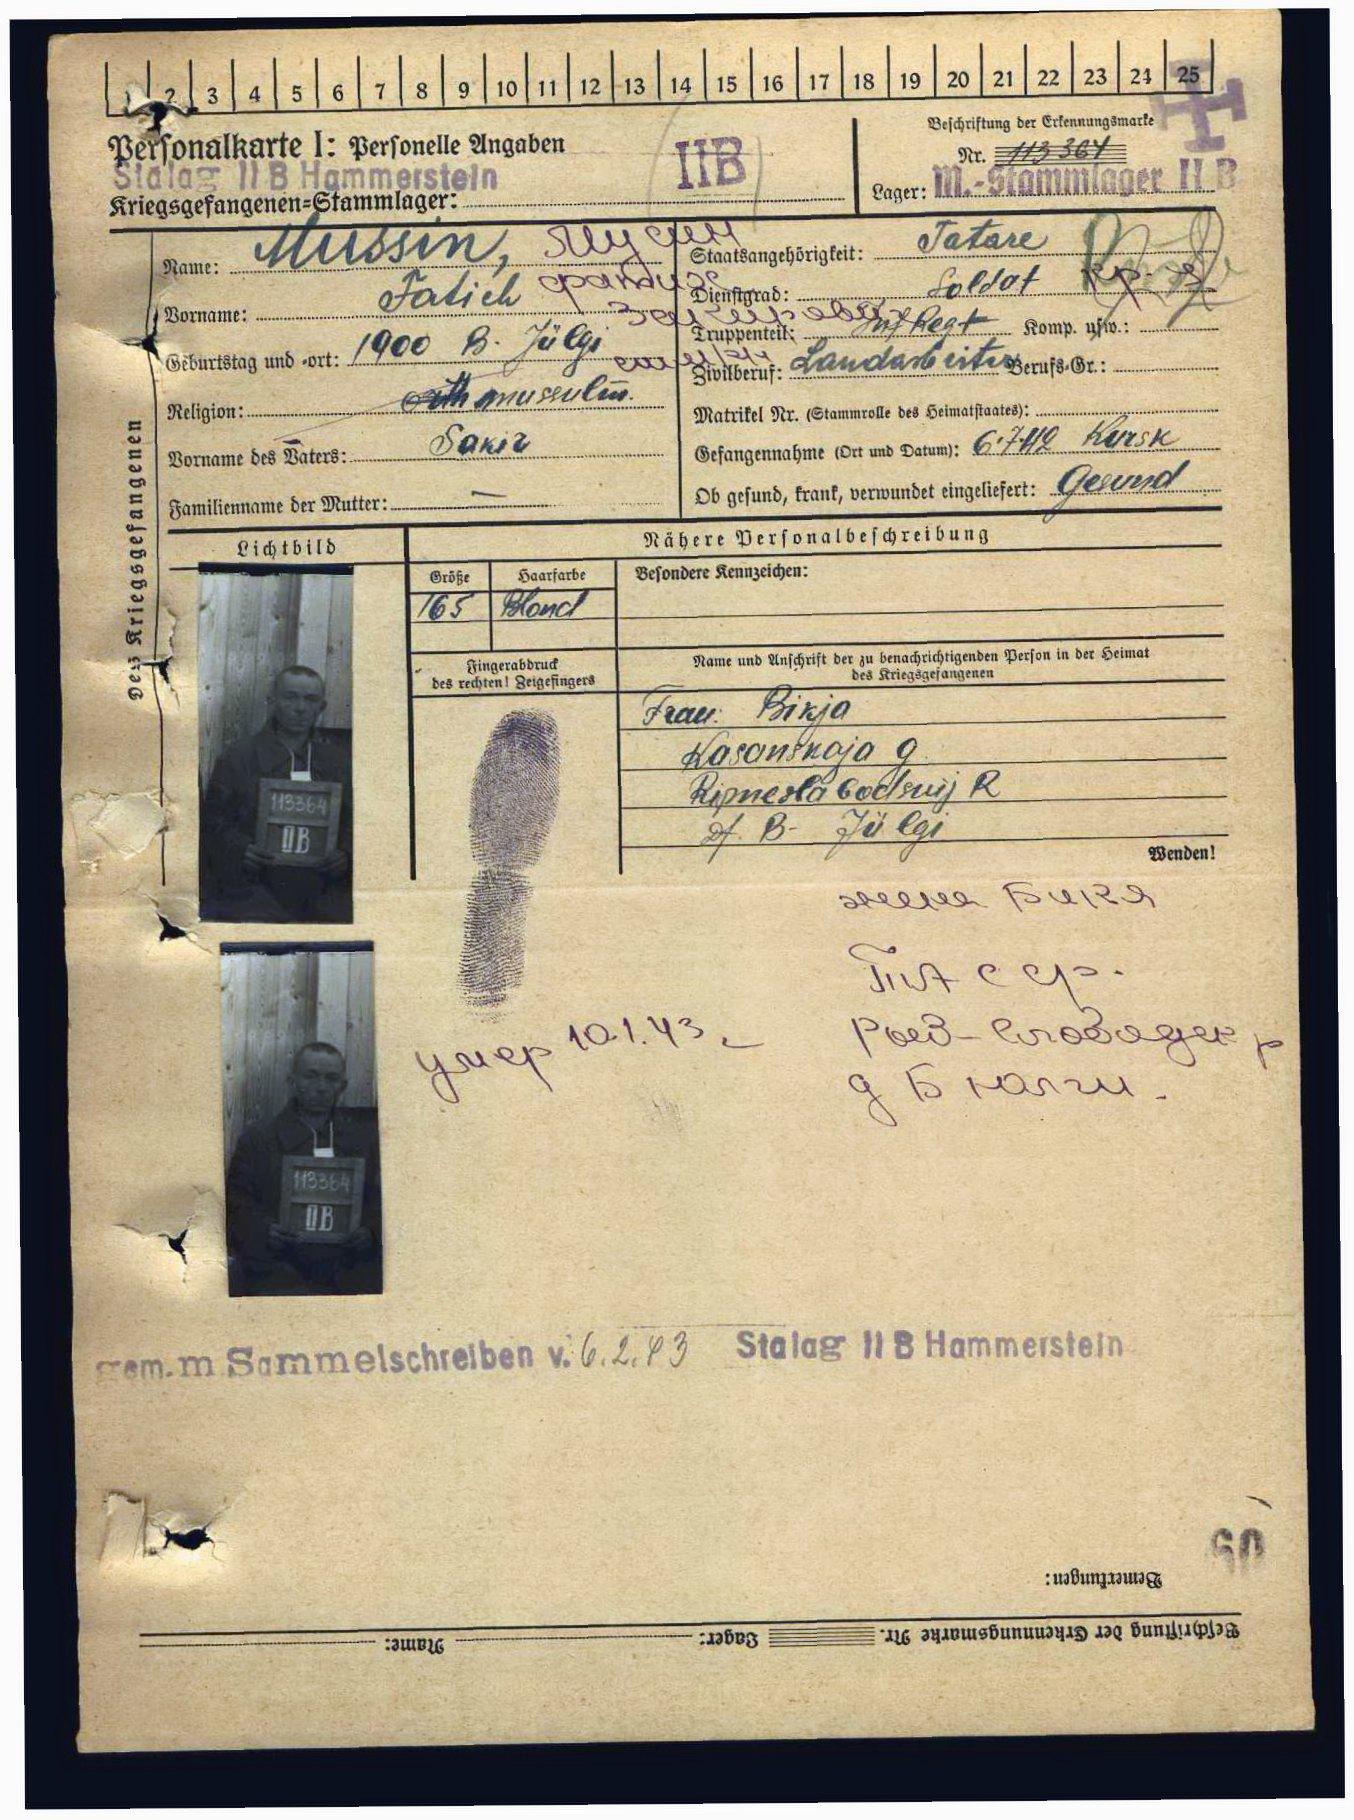 1 2 3 4 5 6 7 8 9 10 11 12 13 14 15 16 17 18 19 20 21 22 23 24 25
Personalkarte I: Personelle Angaben
Stalag II B Hammerstein
Kriegsgefangenen-Stammlager:
IIB
Beschriftung der Erkennungsmarke
Nr. 113364
Lager: M.-Stammlager II B
Des Kriegsgefangenen
Name: Mussin, Мусин
Vorname: Fatich Фатих
Закирович
Geburtstag und -ort: 1900 B. Jülgi
Religion: musulm.
Vorname des Vaters: Sakir
Familienname der Mutter: —
Staatsangehörigkeit: Tatare
Dienstgrad: Soldat кр-ц
Truppenteil: Inf Regt Komp. usw.:
Zivilberuf: Landarbeiter Berufs-Gr.:
Matrikel Nr. (Stammrolle des Heimatstaates):
Gefangennahme (Ort und Datum): 6.7.42 Kursk
Ob gesund, krank, verwundet eingeliefert: Gesund
Lichtbild
Nähere Personalbeschreibung
Größe
165
Haarfarbe
Blond
Besondere Kennzeichen:
Fingerabdruck
des rechten! Zeigefingers
Name und Anschrift der zu benachrichtigenden Person in der Heimat
des Kriegsgefangenen
Frau: Bikja
Kasanskaja g.
R
Df. B- Jülgi
Wenden!
113364
II B
113364
II B
жена Бикя
ТАССР.
р
д Б Юлги.
умер 10.1.43 г
gem. m Sammelschreiben v. 6.2.43 Stalag II B Hammerstein
60
Bemerkungen:
Beschriftung der Erkennungsmarke Nr. Lager: Name: